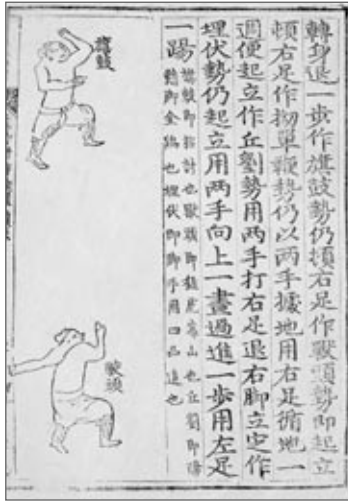 轉身退一步作旗鼓勢仍頓右足作獸頭勢即起立
頓右足作拗單鞭勢仍以两手據地用右足循地一
週便起立作丘劉勢用两手打右足退右脚立定作
埋伏勢仍起立用两手向上一畫過進一步用左足
一踢
旗鼓即招討也獸頭即虎靠山也丘劉即
即金也埋伏即手用四品追也
旗鼓
獸頭